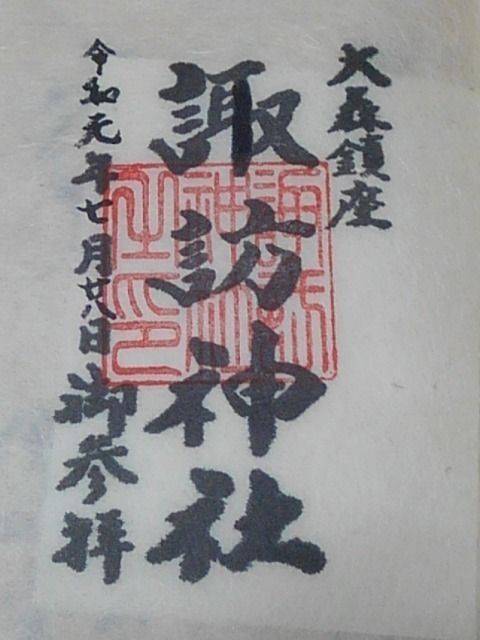 大森鎮座
諏訪神社
令和元年七月廿八日御参拝
諏訪
神社
之印